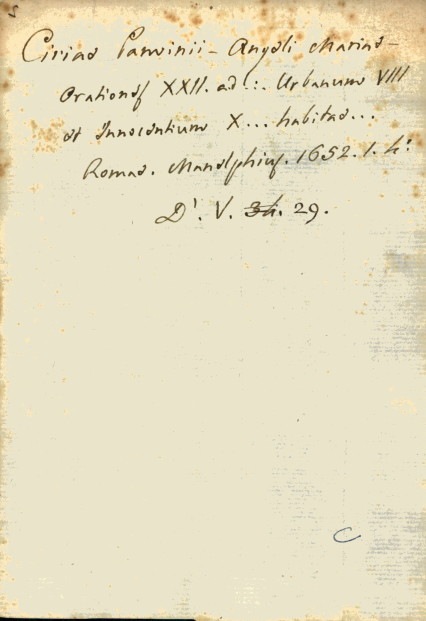 Ciriae Panvinii - Angeli Mariae -
Orationes XXII. ad ... Urbanum VIII
et Innocentium X... habitae...
Romae. Manelphius. 1652. 1. 4º
Dº. V. 34. 29.
C